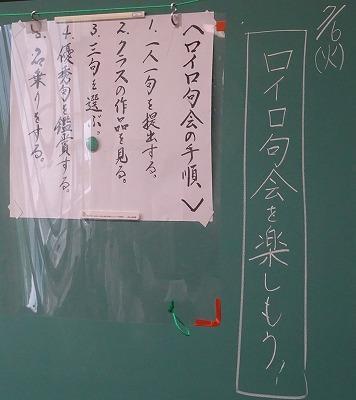 7/6
(火)
ロイロ句会を楽しもう!
〈ロイロ句会の手順〉
1.一人一句を提出する。
2.クラスの作品を見る。
3.三句を選ぶ。
4.優秀句を鑑賞する。
5.名乗りをする。